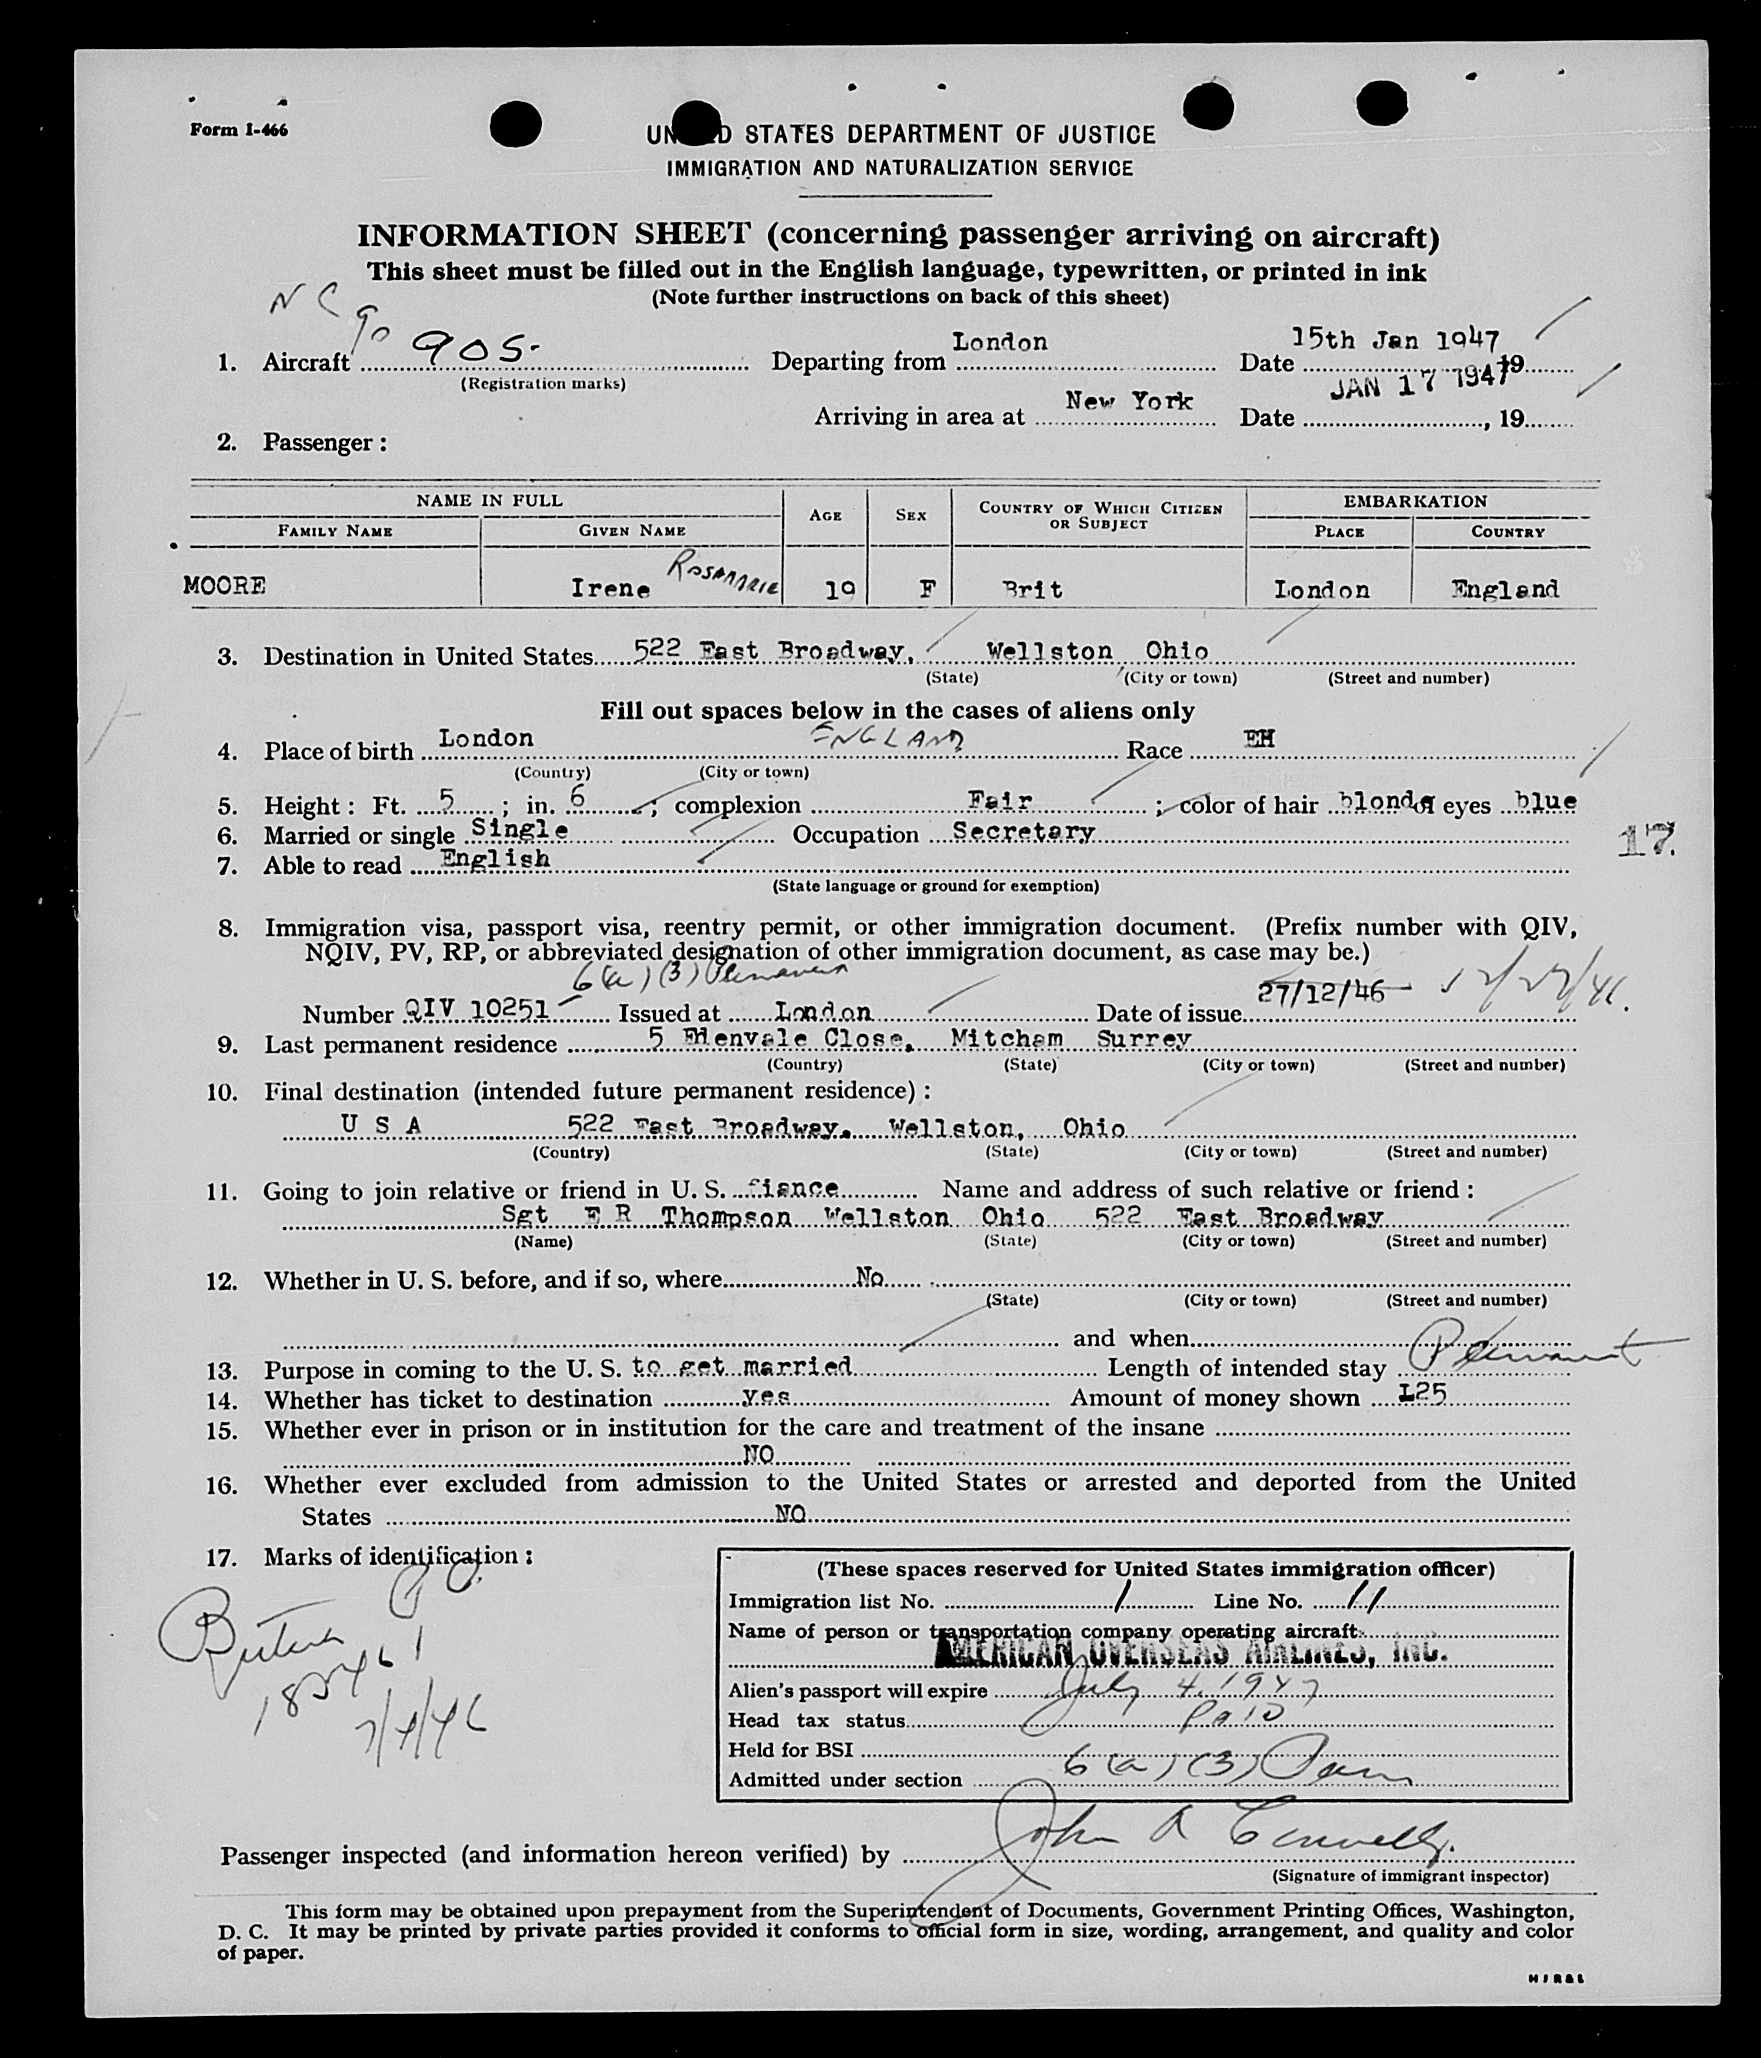 Form I-466
UNITED STATES DEPARTMENT OF JUSTICE
IMMIGRATION AND NATURALIZATION SERVICE
INFORMATION SHEET (concerning passenger arriving on aircraft)
This sheet must be filled out in the English language, typewritten, or printed in ink
(Note further instructions on back of this sheet)
N C 90 905
1. Aircraft Departing from London Date 15th Jan 1947 19
(Registration marks)
Arriving in area at New York Date JAN 17 1947, 19
2. Passenger:
NAME IN FULL AGE SEX COUNTRY OF WHICH CITIZEN OR SUBJECT EMBARKATION
FAMILY NAME GIVEN NAME PLACE COUNTRY
MOORE Irene ROSEMARIE 19 F Brit London England
3. Destination in United States 522 East Broadway, Wellston Ohio
(State) (City or town) (Street and number)
Fill out spaces below in the cases of aliens only
4. Place of birth London ENGLAND Race EH
(Country) (City or town)
5. Height: Ft. 5; in. 6; complexion Fair; color of hair blonde eyes blue
6. Married or single Single Occupation Secretary
17.
7. Able to read English
(State language or ground for exemption)
8. Immigration visa, passport visa, reentry permit, or other immigration document. (Prefix number with QIV,
NQIV, PV, RP, or abbreviated designation of other immigration document, as case may be.)
6(a)(3) Permanent
Number QIV 10251 Issued at London Date of issue 27/12/46 12/27/46.
9. Last permanent residence 5 Edenvale Close, Mitcham Surrey
(Country) (State) (City or town) (Street and number)
10. Final destination (intended future permanent residence):
U S A 522 East Broadway, Wellston, Ohio
(Country) (State) (City or town) (Street and number)
11. Going to join relative or friend in U. S. fiance Name and address of such relative or friend:
Sgt E R Thompson Wellston Ohio 522 East Broadway
(Name) (State) (City or town) (Street and number)
12. Whether in U. S. before, and if so, where No
(State) (City or town) (Street and number)
and when
13. Purpose in coming to the U. S. to get married Length of intended stay Permanent
14. Whether has ticket to destination yes Amount of money shown L25
15. Whether ever in prison or in institution for the care and treatment of the insane
NO
16. Whether ever excluded from admission to the United States or arrested and deported from the United
States NO
17. Marks of identification:
7/4/46
(These spaces reserved for United States immigration officer)
Immigration list No. 1 Line No. 11
Name of person or transportation company operating aircraft
AMERICAN OVERSEAS AIRLINES, INC.
Alien's passport will expire July 4, 1947
Head tax status Paid
Held for BSI
Admitted under section 6(a)(3) Perm
Passenger inspected (and information hereon verified) by John A Connelly.
(Signature of immigrant inspector)
This form may be obtained upon prepayment from the Superintendent of Documents, Government Printing Offices, Washington,
D. C. It may be printed by private parties provided it conforms to official form in size, wording, arrangement, and quality and color
of paper.